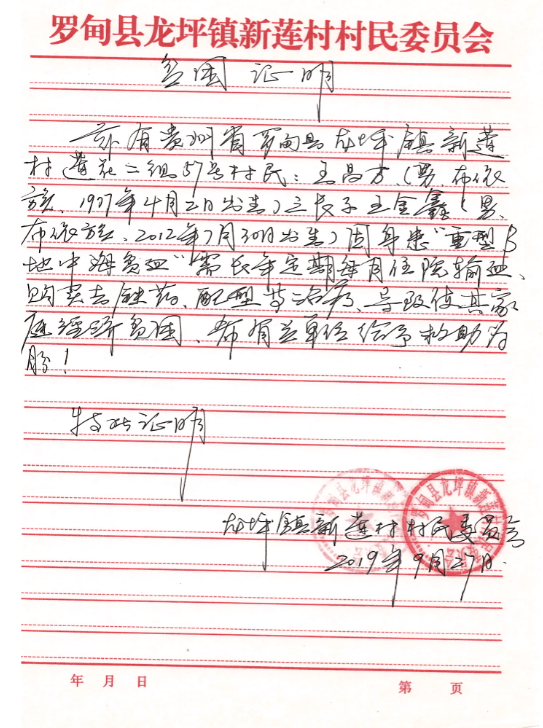 罗甸县龙坪镇新莲村村民委员会
贫困证明
兹有贵州省罗甸县龙坪镇新莲
村莲花二组57号村民：王昌方（男、布依
族、1977年4月2日出生）之长子王金鑫（男、
布依族、2012年7月30日出生）因身患“重型β
地中海贫血”需长年定期每月住院输血、
购买去铁药、配型等治疗、导致使其家
庭经济贫困、希有关单位给予救助为
盼！
特此证明
龙坪镇新莲村村民委员会
2019年9月27日
年 月 日
第 页